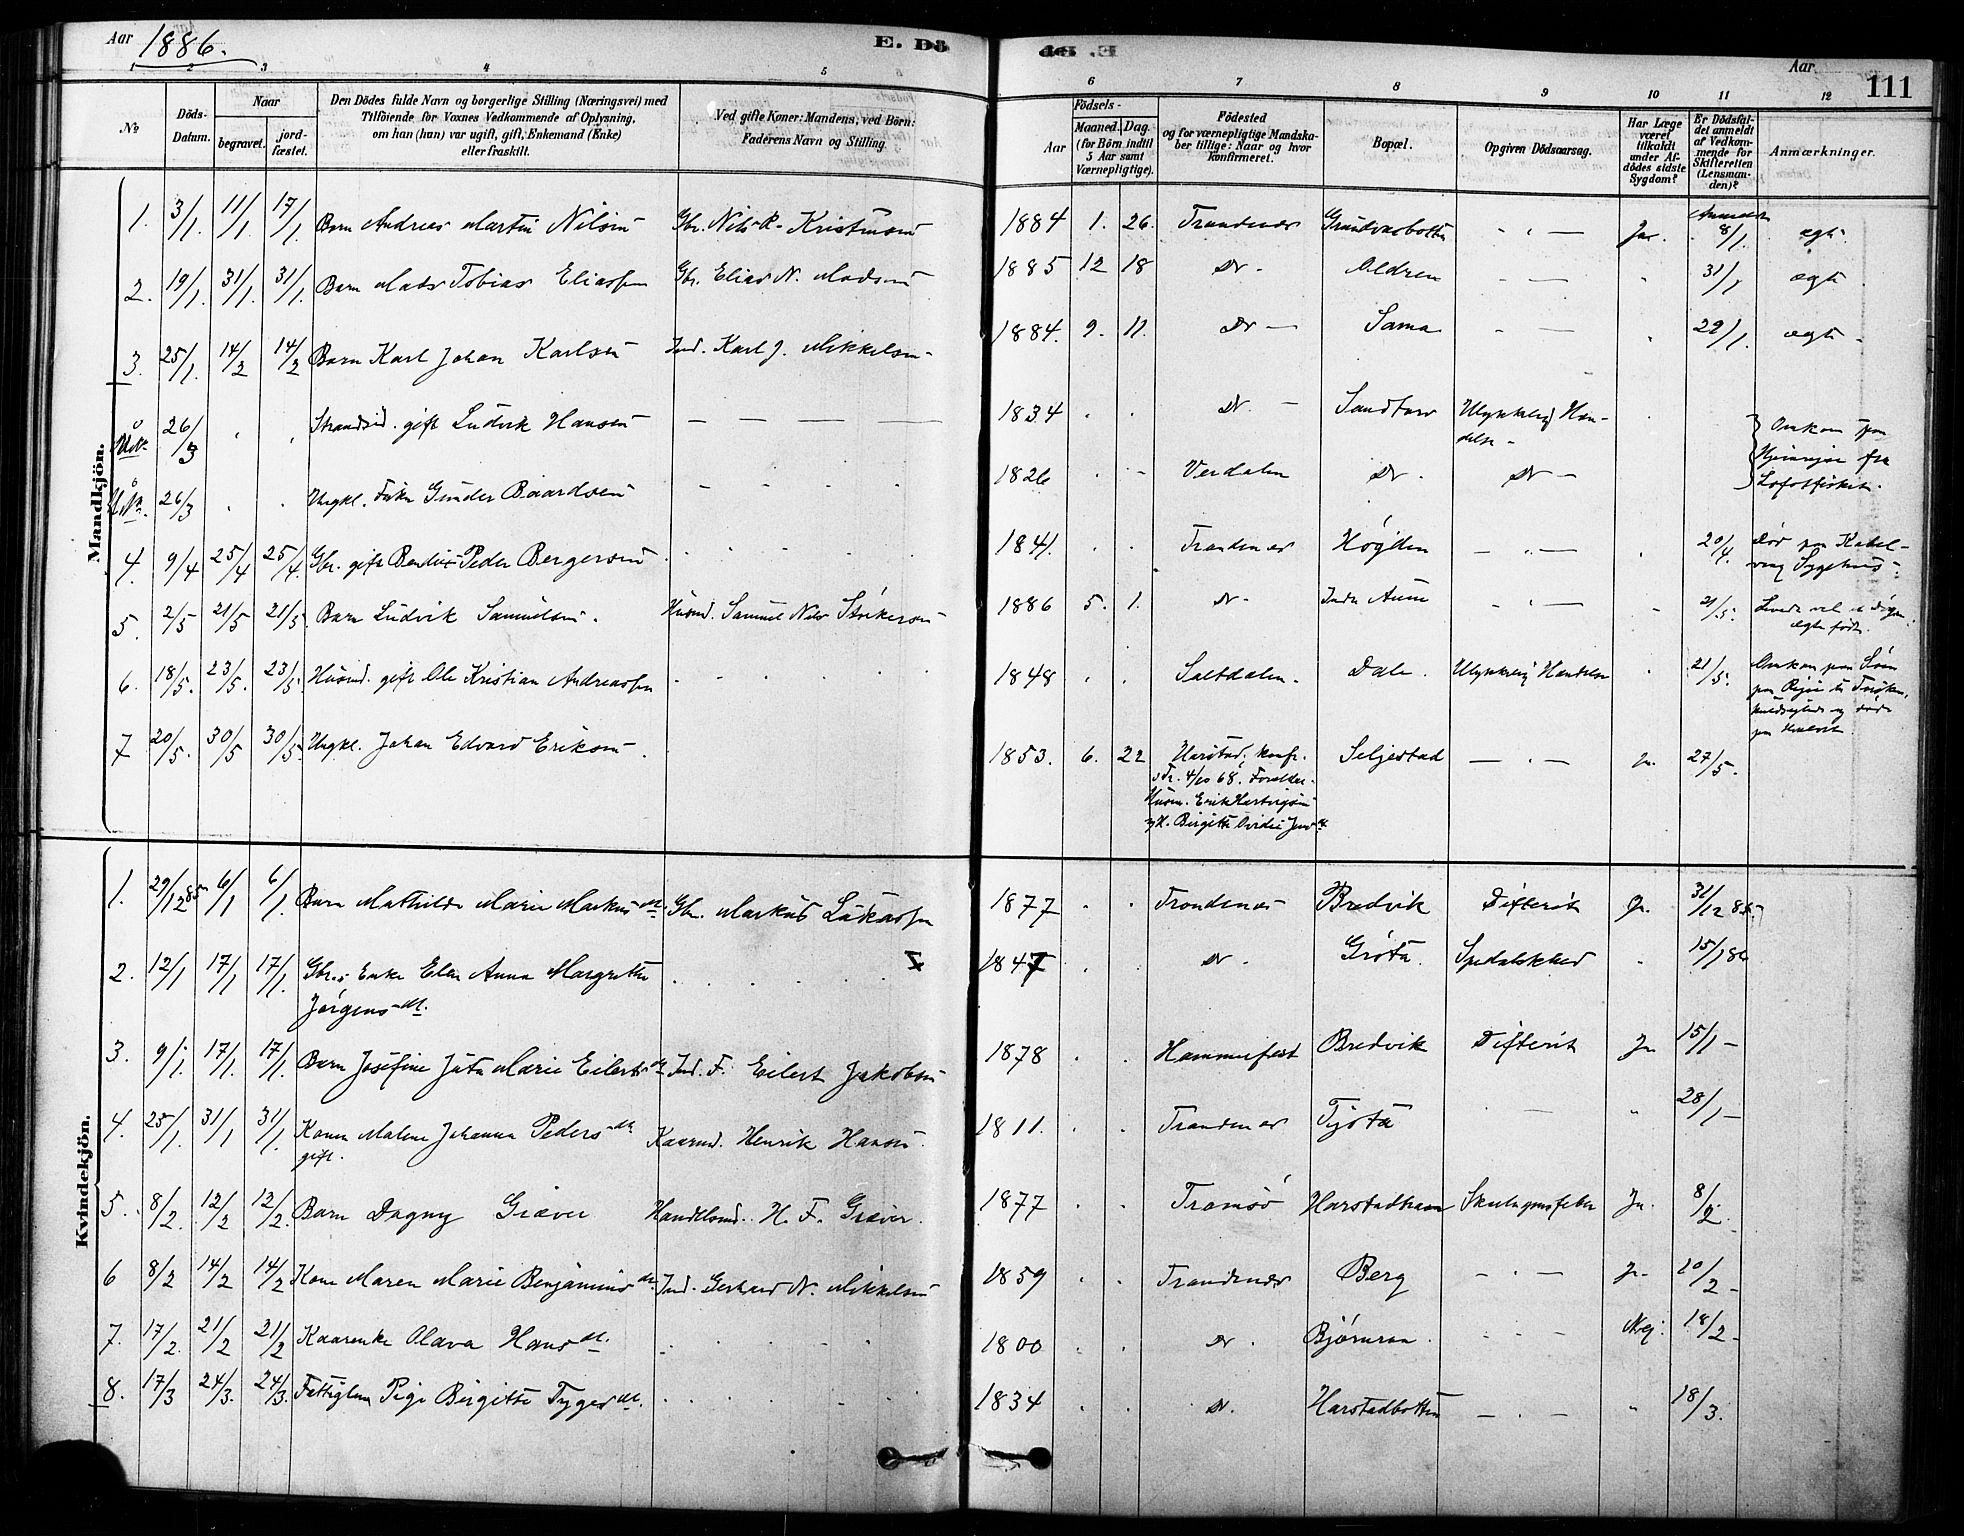 Aar 1886.
E. Dö
Aar
111
1 2 3 4 5 6 7 8 9 10 11 12
№
Döds-Datum.
Naar
begravet.
jord-fæstet.
Den Dödes fulde Navn og borgerlige Stilling (Næringsvei) med
Tilföiende for Voxnes Vedkommende af Oplysning,
om han (hun) var ugift, gift, Enkemand (Enke)
eller fraskilt.
Ved gifte Koner: Mandens, ved Börn:
Faderens Navn og Stilling.
Födsels-
Aar
Maaned. Dag.
(for Börn indtil
5 Aar samt
Værnepligtige).
Födested
og for værnepligtige Mandska-
ber tillige: Naar og hvor
konfirmeret.
Bopæl.
Opgiven Dödsaarsag.
Har Læge
været
tilkaldt
under Af-
dödes sidste
Sygdom?
Er Dödsfal-
det anmeldt
af Vedkom-
mende for
Skifteretten
(Lensman-
den)?
Anmærkninger.
Mandkjön.
1. 3/1 11/1 17/1. Barn Andreas Martin Nilsen Gbr. Nils R. Kristensen 1884 1. 26. Trondenes Ja. Anmeldt 8/1. ægte.
2. 19/1. 31/1. 31/1. Barn Mads Tobias Eliassen Gbr. Elias N. Madsen 1885 12 18 Do. Aldren 31/1 ægte
3. 25/1. 14/2 14/2 Barn Karl Johan Karlsen Ind. Karl J. Mikkelsen 1884. 9. 11. Do — Sama 29/1. ægte
26/3 Strandsid. gift Ludvik Hansen — — — — 1834 Do. — Sandtorv Ulykkelig Hændelse Omkom paa
Hjemrejse fra
Lofotfisket.
26/3 Ungkl. Gunder Baardsen 1826 Verdalen Do. Do —
4. 9/4 25/4 25/4. Gbr. gift Bendix Peder Bergersen 1841. Trondenes Høgden 20/4. Død paa Kabel-
vaag Sygehus.
5. 2/5 21/5 21/5. Barn Ludvik Samuelsen. Husmd. Samuel Nils 1886 5. 1. Do. Indre Aune 21/5.
ægte født.
6. 18/5. 23/5. 23/5 Husmd. gift Ole Kristian Andreassen 1848 Saltdalen. Dale. Ulykkelig Hændelse 21/5. Omkom paa Søen
7 20/5. 30/5 30/5. Ungkl. Johan Edvard Eriksen 1853. 6. 22 Harstad; konf.
i Tr. 4/10 68. Forældre:
Husm. Erik Hartvigsen
og H. Birgitte Jensdt Seljestad ja. 27/5.
Kvindekjön.
1. 29/12 85 6/1 6/1. Barn Mathilde Marie Markusdt. Gbr. Markus Lukassen 1877 Trondenes Bredvik Difterit Ja. 31/12 85.
2. 12/1 17/1 17/1. Gbr.s Enke Elen Anna Margrethe
Jørgensdt. X 1847 Do. Grøta. Spedalskhed 15/1 86
3. 9/1. 17/1 17/1. Barn Josefine Juta Marie Eilertsdt Ind. F. Eilert Jakobsen 1878 Hammerfest Bredvik Difterit Ja 15/1 —
4. 25/1. 31/1 31/1. Kone Malene Johanna Pedersdt
gift. Kaarmd. Henrik Hansen. 1811. Trondenes 28/1 —
5 8/2. 12/2 12/2. Barn Dagny Græver Handelsmd. H. F. Græver. 1877 Tromsø Harstadhavn Skarlagensfeber Ja. 8/2.
6 8/2 14/2 14/2 Kone Maren Marie Benjaminsdt. Ind. Gerhard N. Mikkelsen 1859 Trondenes Berg Ja. 10/2 —
7. 17/2. 21/2 21/2 Kaarenke Olava Hansdt. 1800 Do. Nej. 18/2 —
8. 17/3 24/3. 24/3. Fattiglem Pige Birgitte Tygesdt. 1834 Do. Harstadbotten 18/3.